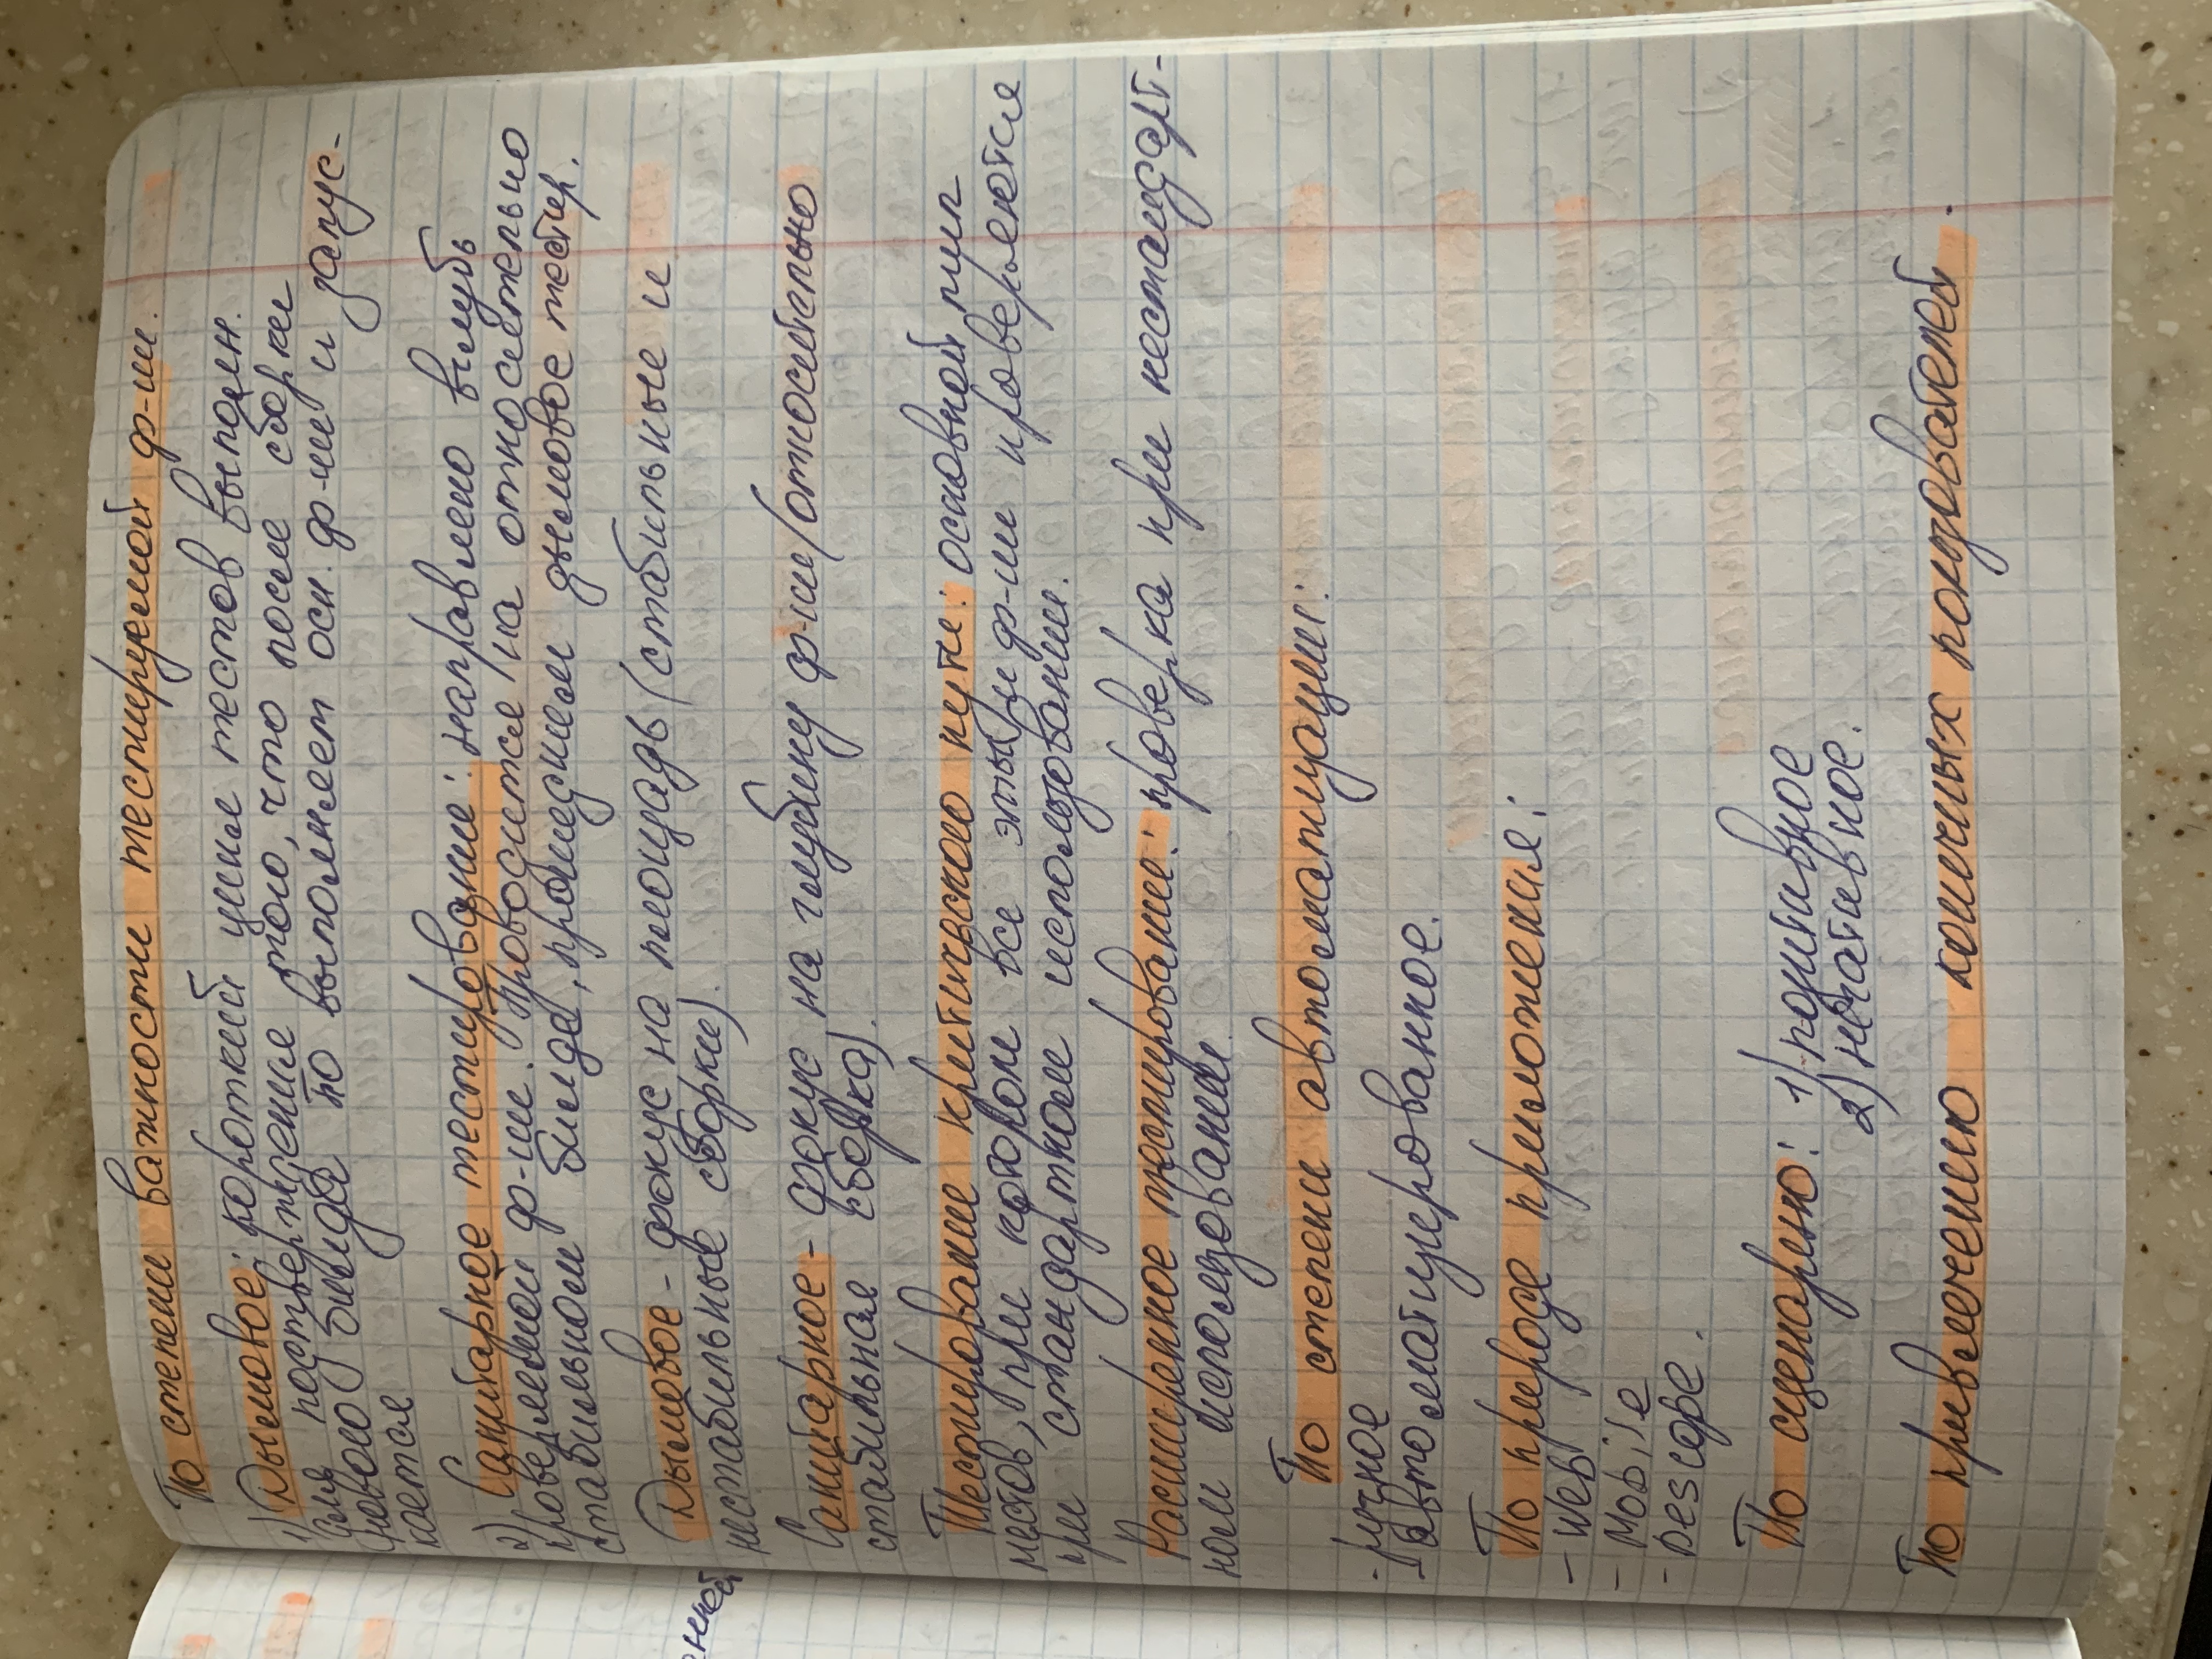 По степени важности тестируемой ф-ии.
1) Дымовое: короткий цикл тестов выполн.
для постверждения того, что после сборки
нового билда ПО выполняет осн. ф-ии и запус-
кается
2) Санитарное тестирование: направлено вглубь
проверяемой ф-ии. Проводится на относительно
стабильном билде, прошедшем дымовое тестир.
Дымовое - фокус на площадь (стабильные и
нестабильные сборки).
Санитарное - фокус на глубину ф-ии (относительно
стабильная сборка).
Тестирование критического пути: основной тип
тестов, при котором все эл-ты и ф-ии проверяются
при стандартном использовании.
Расширенное тестирование: проверка при нестандарт-
ном использовании.
По степени автоматизации:
- ручное
- автоматизированное.
По природе приложения:
- Web
- Mobile
- Descope.
По сценарию: 1) позитивное
2) негативное.
По привлечению конечных пользователей.